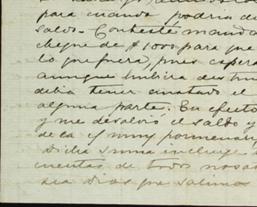 para cuando podria de
saldo. Contesté mandá
cheque de $1000 para que
lo que fuera, pues espera
aunque hubiera
debia tener enviado el
alguna parte. En efecto
y me devolvió el saldo y
de ca y muy pormenori
Dicha suma incluye
cuentas de todos nosot
sea Dios que salimos